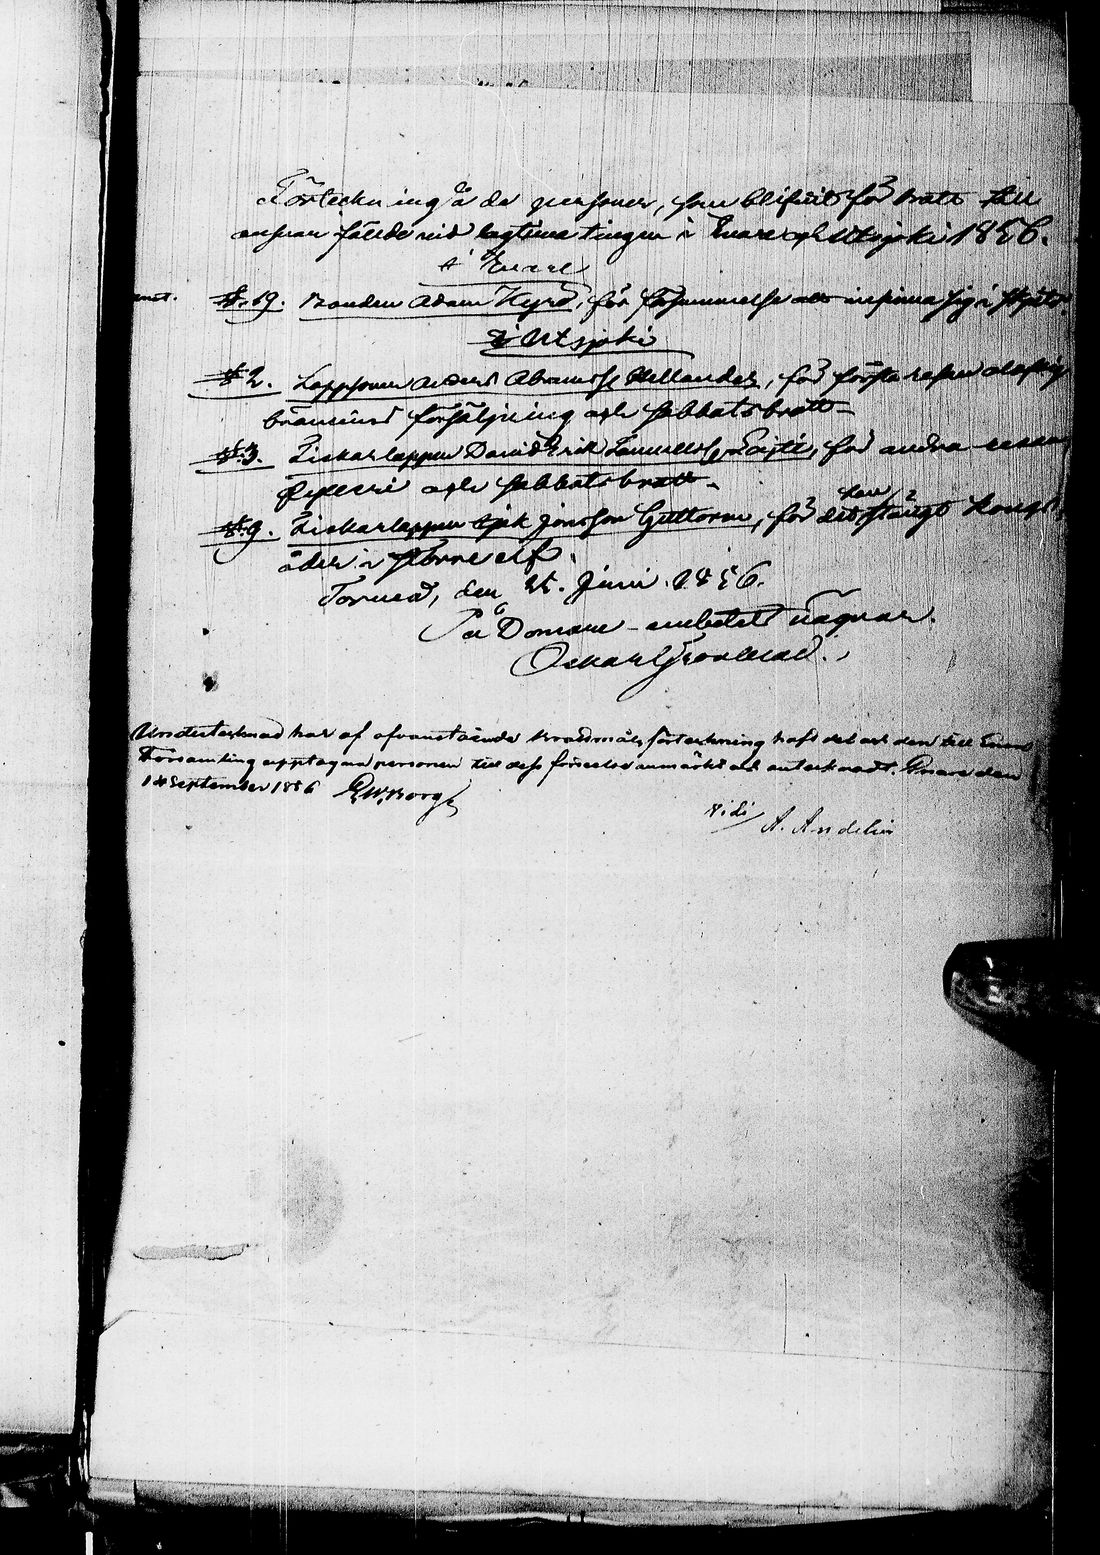 Förteckning å de personer, som blifvit för brott till
ansvar fällde vid lagtima tingen i Enare och Utsjoki 1856.
i Enare
§. 19. Bonden Adam Kyrö, för försummelse att infinna sig i skjuts.
i Utsjoki
§ 2. Lappman Anders Abramss. Hellander, för första resan olaflig
bränvins försäljning och sabbatsbrott
§. 3. Fiskarlappen David Erik Samuelss. Lajti, för andra resan
fylleri och sabbatsbrott.
§. 9. Fiskarlappen Jonsson Guttorm, för det han stängt kongs
åder i elf.
Torneå, den 25. Juni 1856.
På Domare-embetets vägnar.
Oskar
Undertecknad har af ofvanstående brottmåls förteckning haft del och den till Enare
Församling upptagna personen till dess förseelse anmärkt och antecknadt. Enare den
14 September 1856 E. W. Borg
Vidi A. Andelin